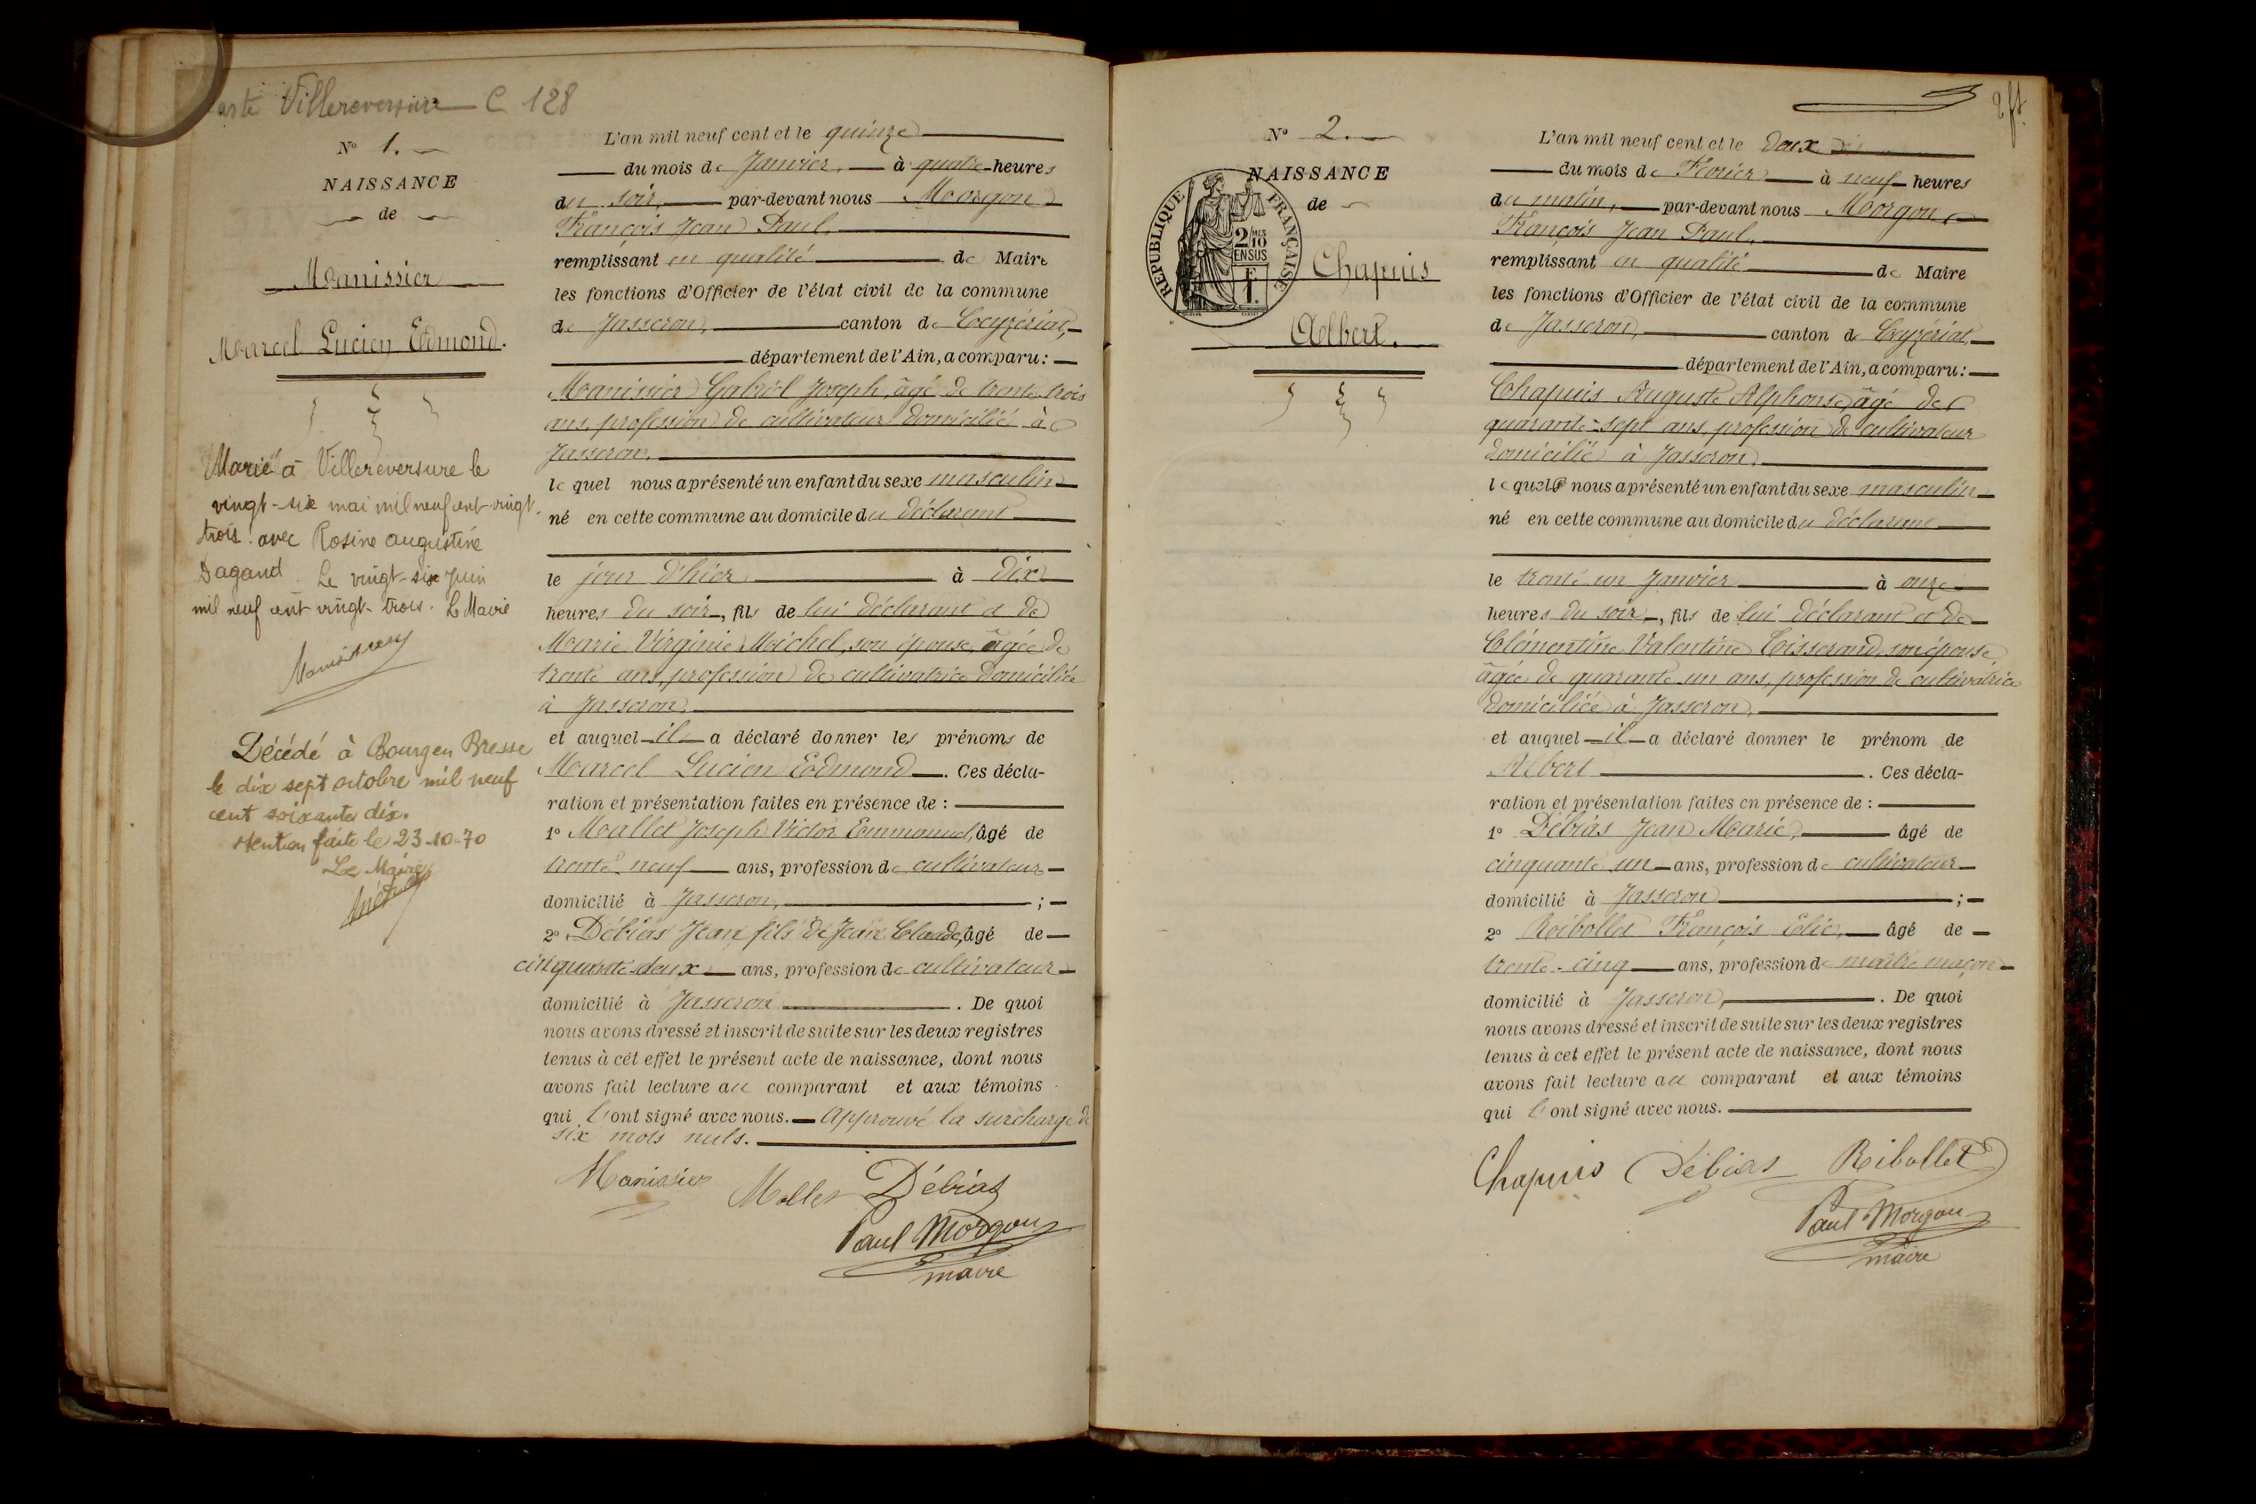 Villereversure C 128
N° 1.
NAISSANCE
de
Manissier
Marcel Lucien Edmond.
Marié à Villereversure le
vingt-six mai mil neuf cent vingt-
trois avec Rosine Augustine
Dagand. Le vingt-six juin
mil neuf cent vingt-trois. Le Maire
Décédé à Bourg en Bresse
le dix sept octobre mil neuf
cent soixante dix.
Mention faite le 23-10-70
Le Maire
L'an mil neuf cent et le quinze
du mois de Janvier, à quatre heures
du soir, par-devant nous Morgon
François Jean Paul,
remplissant en qualité de Maire
les fonctions d'Officier de l'état civil de la commune
de Jasseron, canton de Ceyzériat,
département de l'Ain, a comparu :
Manissier Gabriel Joseph, âgé de trente-trois
ans, profession de cultivateur domicilié à
Jasseron,
le quel nous a présenté un enfant du sexe masculin
né en cette commune au domicile du déclarant
le jour d'hier à dix
heures du soir, fils de lui déclarant et de
Marie Virginie Michel, son épouse, âgée de
trente ans, profession de cultivatrice domiciliée
à Jasseron
et auquel il a déclaré donner les prénoms de
Marcel Lucien Edmond. Ces décla-
ration et présentation faites en présence de :
1° Mallet Joseph Victor Emmanuel, âgé de
trente neuf ans, profession de cultivateur
domicilié à Jasseron, ;
2° Débias Jean fils de Jean Claude, âgé de
cinquante deux ans, profession de cultivateur
domicilié à Jasseron. De quoi
nous avons dressé et inscrit de suite sur les deux registres
tenus à cet effet le présent acte de naissance, dont nous
avons fait lecture au comparant et aux témoins
qui l'ont signé avec nous. Approuvé la surcharge de
six mots nuls.
Manissier Mallet Débias
Paul Morgon
maire
2 ft
N° 2.
NAISSANCE
de
REPUBLIQUE FRANÇAISE
2/10 MES
EN SUS
1 F.
Chapuis
Albert.
L'an mil neuf cent et le deux
du mois de Février à neuf heures
du matin, par-devant nous Morgon
François Jean Paul,
remplissant en qualité de Maire
les fonctions d'Officier de l'état civil de la commune
de Jasseron, canton de Ceyzériat,
département de l'Ain, a comparu :
Chapuis Auguste Alphonse, âgé de
quarante-sept ans, profession de cultivateur
domicilié à Jasseron,
le quel nous a présenté un enfant du sexe masculin
né en cette commune au domicile du déclarant
le trente un Janvier à onze
heures du soir, fils de lui déclarant et de
Clémentine Valentine Tisserand, son épouse
âgée de quarante un ans, profession de cultivatrice
domiciliée à Jasseron,
et auquel il a déclaré donner le prénom de
Albert. Ces décla-
ration et présentation faites en présence de :
1° Débias Jean Marie, âgé de
cinquante un ans, profession de cultivateur
domicilié à Jasseron ;
2° Ribollet François Elie, âgé de
trente-cinq ans, profession de maître maçon
domicilié à Jasseron, . De quoi
nous avons dressé et inscrit de suite sur les deux registres
tenus à cet effet le présent acte de naissance, dont nous
avons fait lecture au comparant et aux témoins
qui l'ont signé avec nous.
Chapuis Débias Ribollet
Paul Morgon
maire